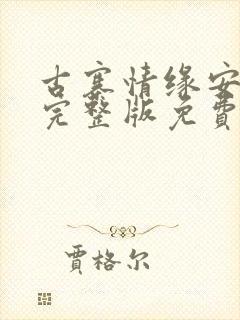 古寨情缘安
完整版免費
賈格尔